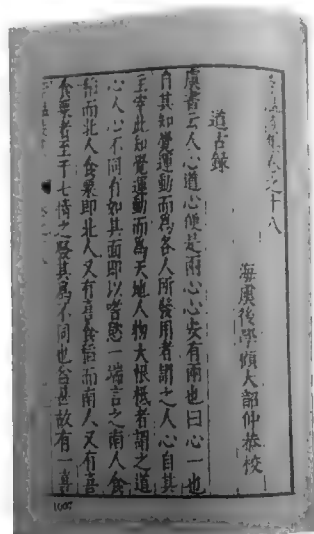 集卷之十八
海虞後學顧大韶仲恭校
道古錄
虞書云人心道心便是兩心心安有兩也曰心一也
自其知覺運動而為各人所發用者謂之人心自其
主宰此知覺運動而為天地人物大根柢者謂之道
心人心不同有如其面即以嗜慾一端言之南人食
稻而北人食粟即北人又有喜食稻而南人又有喜
食粟者至于七情之發其為不同也益甚故有一喜
1007